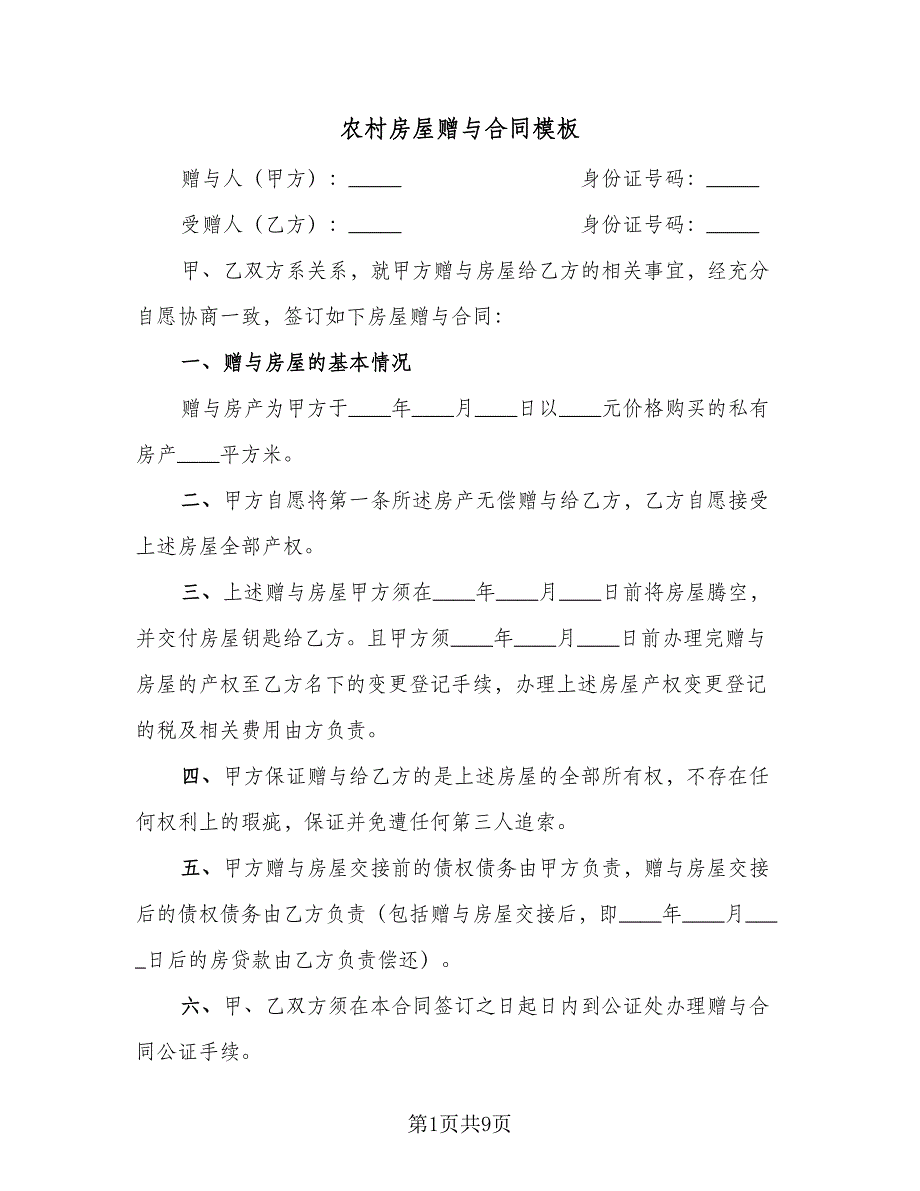 农村房屋赠与合同模板
赠与人（甲方）：_____ 身份证号码：_____
受赠人（乙方）：_____ 身份证号码：_____
甲、乙双方系关系，就甲方赠与房屋给乙方的相关事宜，经充分
自愿协商一致，签订如下房屋赠与合同：
一、赠与房屋的基本情况
赠与房产为甲方于____年____月____日以____元价格购买的私有
房产____平方米。
二、甲方自愿将第一条所述房产无偿赠与给乙方，乙方自愿接受
上述房屋全部产权。
三、上述赠与房屋甲方须在____年____月____日前将房屋腾空，
并交付房屋钥匙给乙方。且甲方须____年____月____日前办理完赠与
房屋的产权至乙方名下的变更登记手续，办理上述房屋产权变更登记
的税及相关费用由方负责。
四、甲方保证赠与给乙方的是上述房屋的全部所有权，不存在任
何权利上的瑕疵，保证并免遭任何第三人追索。
五、甲方赠与房屋交接前的债权债务由甲方负责，赠与房屋交接
后的债权债务由乙方负责（包括赠与房屋交接后，即____年____月___
_日后的房贷款由乙方负责偿还）。
六、甲、乙双方须在本合同签订之日起日内到公证处办理赠与合
同公证手续。
第1页共9页